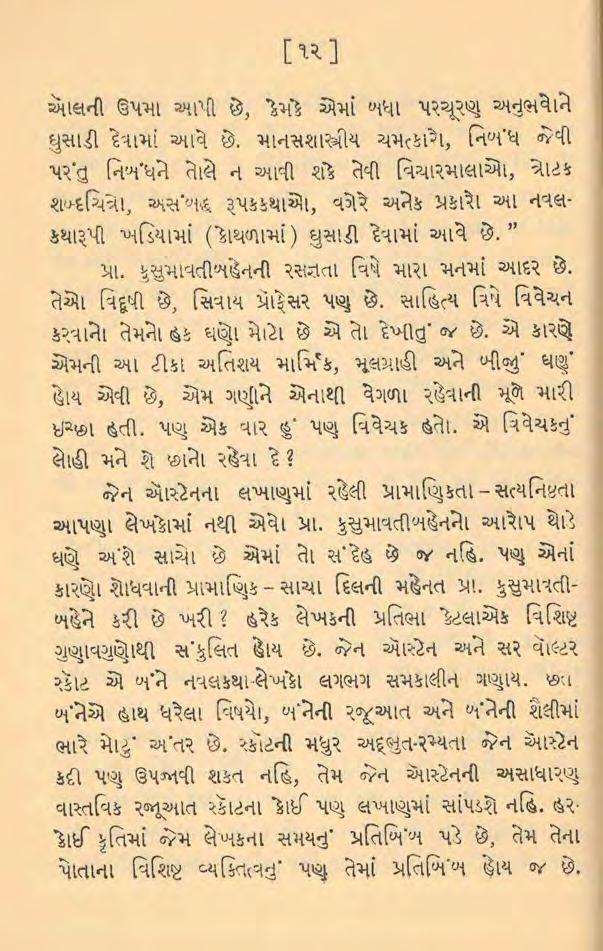 [ ૧૨ ]
ઑલની ઉપમા આપી છે, કેમકે એમાં બધા પરચૂરણ અનુભવોને
ઘુસાડી દેવામાં આવે છે. માનસશાસ્ત્રીય ચમત્કારો, નિબંધ જેવી
પરંતુ નિબંધને તોલે ન આવી શકે તેવી વિચારમાલાઓ, ત્રોટક
શબ્દચિત્રો, અસંબદ્ધ રૂપકકથાઓ, વગેરે અનેક પ્રકારો આ નવલ-
કથારૂપી ખડિયામાં (કોથળામાં) ઘુસાડી દેવામાં આવે છે.”
પ્રા. કુસુમાવતીબહેનની રસજ્ઞતા વિષે મારા મનમાં આદર છે.
તેઓ વિદૂષી છે, સિવાય પ્રૉફેસર પણ છે. સાહિત્ય વિષે વિવેચન
કરવાનો તેમનો હક ઘણો મોટો છે એ તો દેખીતું જ છે. એ કારણે
એમની આ ટીકા અતિશય માર્મિક, મૂલગ્રાહી અને બીજું ઘણું
હોય એવી છે, એમ ગણીને એનાથી વેગળા રહેવાની મૂળે મારી
ઇચ્છા હતી. પણ એક વાર હું પણ વિવેચક હતો. એ વિવેચકનું
લોહી મને શે છાનો રહેવા દે?
જેન ઑસ્ટેનના લખાણમાં રહેલી પ્રામાણિકતા – સત્યનિષ્ઠતા
આપણા લેખકોમાં નથી એવો પ્રા. કુસુમાવતીબહેનનો આરોપ થોડે
ઘણે અંશે સાચો છે એમાં તો સંદેહ છે જ નહિ. પણ એનાં
કારણો શોધવાની પ્રામાણિક – સાચા દિલની મહેનત પ્રા. કુસુમાવતી-
બહેને કરી છે ખરી? હરેક લેખકની પ્રતિભા કેટલાએક વિશિષ્ટ
ગુણાવગુણોથી સંકુલિત હોય છે. જેન ઑસ્ટેન અને સર વૉલ્ટર
સ્કૉટ એ બંને નવલકથા-લેખકો લગભગ સમકાલીન ગણાય. છતા
બંનેએ હાથ ધરેલા વિષયો, બંનેની રજૂઆત અને બંનેની શૈલીમાં
ભારે મોટું અંતર છે. સ્કૉટની મધુર અદ્ભુત-રમ્યતા જેન ઑસ્ટેન
કદી પણ ઉપજાવી શકત નહિ, તેમ જેન ઑસ્ટેનની અસાધારણ
વાસ્તવિક રજૂઆત સ્કૉટના કોઈ પણ લખાણમાં સાંપડશે નહિ. હર-
કોઈ કૃતિમાં જેમ લેખકના સમયનું પ્રતિબિંબ પડે છે, તેમ તેના
પોતાના વિશિષ્ટ વ્યક્તિત્વનું પણ તેમાં પ્રતિબિંબ હોય જ છે.